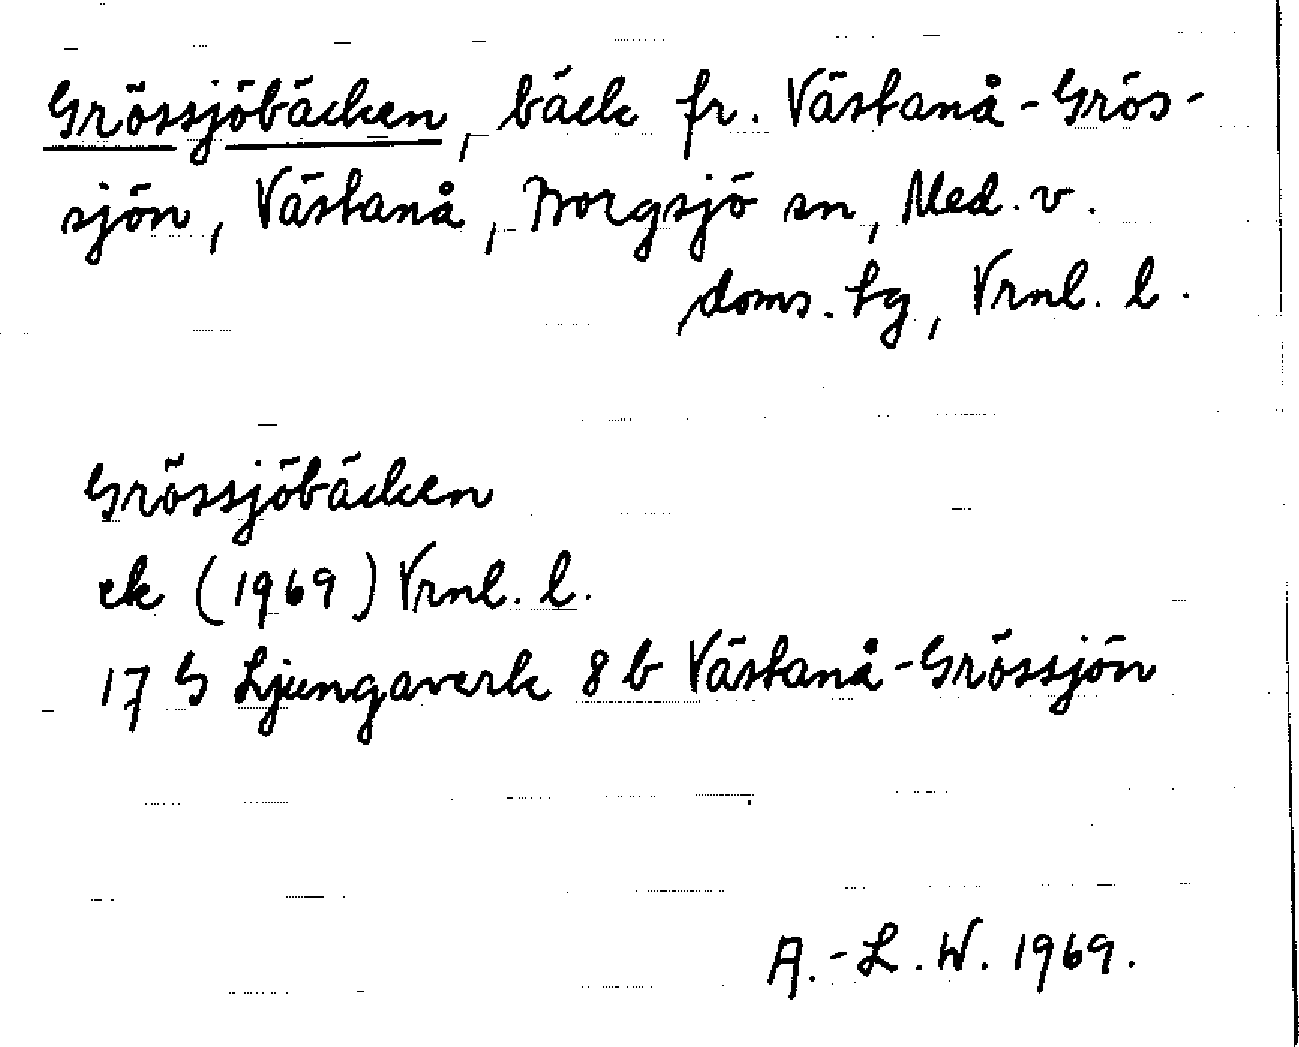 Grössjöbäcken, bäck fr. Västanå-Grös-
sjön, Västanå, Borgsjö sn, Med. v.
doms. tg, Vrnl. l.
Grössjöbäcken
ek (1969) Vrnl. l.
17 G Ljungaverk 8 b Västanå-Grössjön
A.-L. W. 1969.